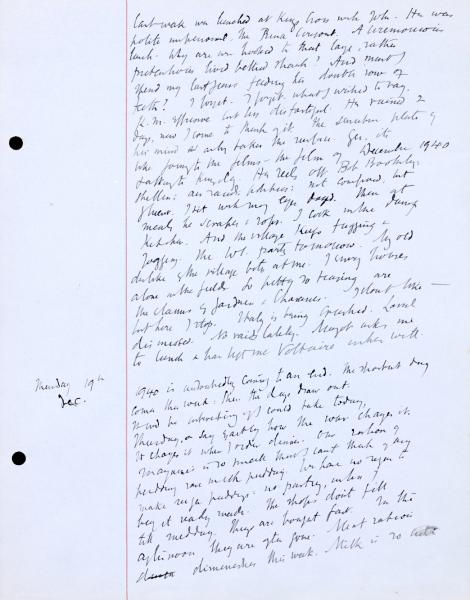 Last week we lunched at Kings Cross with John. He was
polite impersonal. The Bina Consort. A ceremonious
lunch. Why are we hooked to that large, rather
pretentious livid bellied shark? And must I
spend my last years feeding his double row of
teeth? I forget. I forget what I wished to say.
K.M. effusive but less distasteful. He rained 2
days, now I come to think of it. The sensitive plate of
his mind only takes the surface. Yes, its
like going to the films — the film of December 1940
talking to him. He reels off Bob Boothby,
Shelter: air raid: politics: not composed, but
fluent. I sit with my eyes dazed. Then at
meals he scrapes & sops. I cook in the damp
kitchen. And the village keeps tugging &
jogging. The W.I. party tomorrow. My old
dislike of the village bites at me. I envy houses
alone in the fields. So petty so teasing are
the claims of Gardners & Chavasses. I dont like —
but here I stop. Italy is being crushed. Laval
dismissed. No raids lately. Margot asks me
to lunch & has left me Voltaire in her will.
Thursday 19th
Dec.
1940 is undoubtedly coming to an end. The shortest day
comes this week: then the days draw out.
It wd be interesting if I could take today,
Thursday, & say exactly how the war changes it.
It changes it when I order dinner. Our ration of
margarine is so small that I cant think of any
pudding save milk pudding. We have no sugar to
make sugar puddings: no pastry, unless I
buy it ready made. The shops dont fill
till midday. Things are bought fast. In the
afternoon they are often gone. Meat ration
diminishes this week. Milk is so